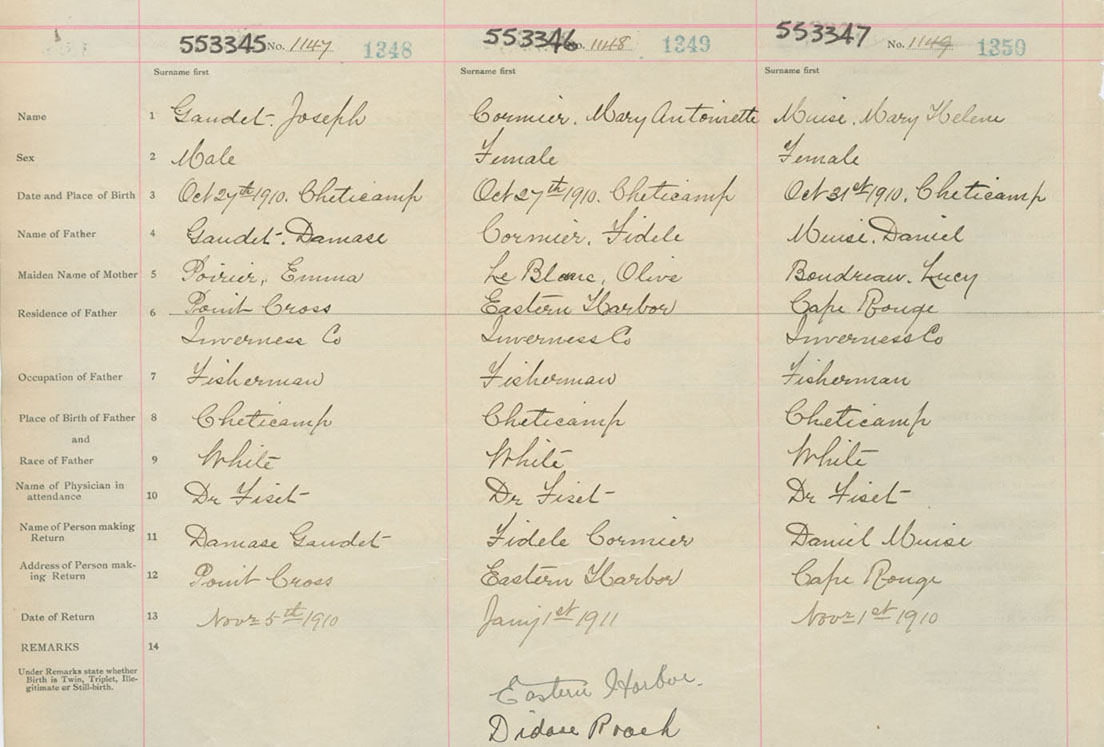 553345 No. 1147 1348 553346 No. 1148 1349 553347 No. 1149 1350
Surname first Surname first Surname first
Name 1 Gaudet. Joseph Cormier. Mary Antoinette Muise. Mary Helene
Sex 2 Male Female Female
Date and Place of Birth 3 Oct 27th 1910. Cheticamp Oct 27th 1910. Cheticamp Oct 31st 1910. Cheticamp
Name of Father 4 Gaudet. Damase Cormier. Fidele Muise. Daniel
Maiden Name of Mother 5 Poirier, Emma Le Blanc, Olive Boudreau. Lucy
Residence of Father 6 Point Cross Eastern Harbor Cape Rouge
Inverness Co Inverness Co Inverness Co
Occupation of Father 7 Fisherman Fisherman Fisherman
Place of Birth of Father 8 Cheticamp Cheticamp Cheticamp
and
Race of Father 9 White White White
Name of Physician in
attendance 10 Dr Fiset Dr Fiset Dr Fiset
Name of Person making
Return 11 Damase Gaudet Fidele Cormier Daniel Muise
Address of Person mak-
ing Return 12 Point Cross Eastern Harbor Cape Rouge
Date of Return 13 Novr 5th 1910 Jany 1st 1911 Novr 1st 1910
REMARKS 14
Under Remarks state whether
Birth is Twin, Triplet, Ille-
gitimate or Still-birth.
Eastern Harbor.
Roach